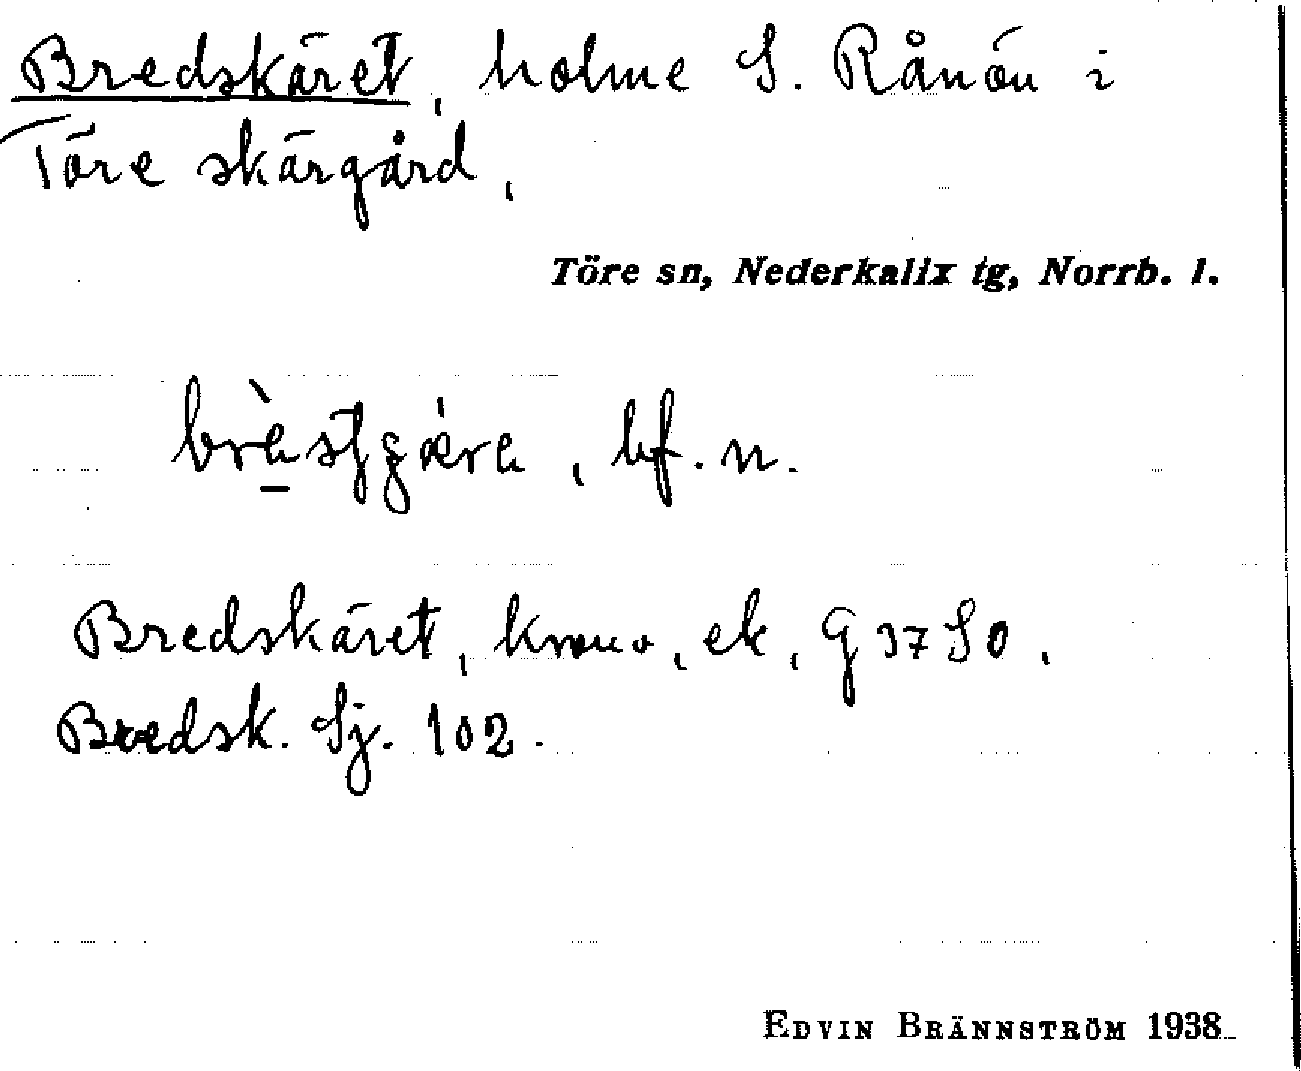 Bredskäret, holme S. Rånön i
Töre skärgård,
Töre sn, Nederkalix tg, Norrb. l.
bf. n.
Bredskäret, krono, ek, G 37 SO,
Bredsk. Sj. 102.
EDVIN BRÄNNSTRÖM 1938